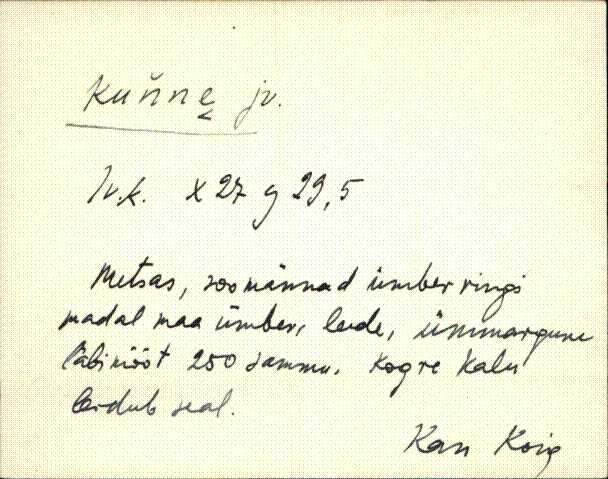 Kuňnḙ jv.
Iv.k. X 27 y 29,5
Metsas, soomännad ümberringi
madal maa ümber, lude, ümmargune
läbimööt 250 sammu. Kogre Kalu
leidub seal.
Kan Koig